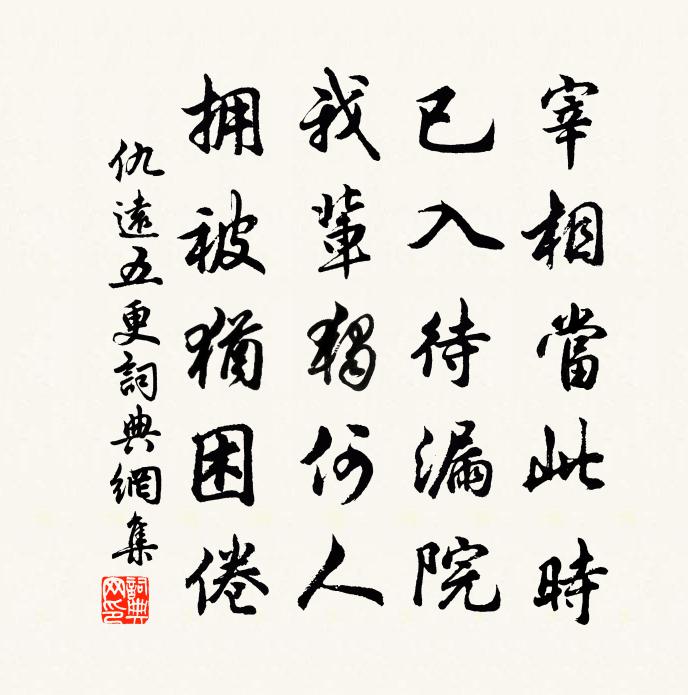 宰相當此時
已入待漏院
我輩獨何人
擁被猶困倦
仇遠五更詞典網集
詞典網印